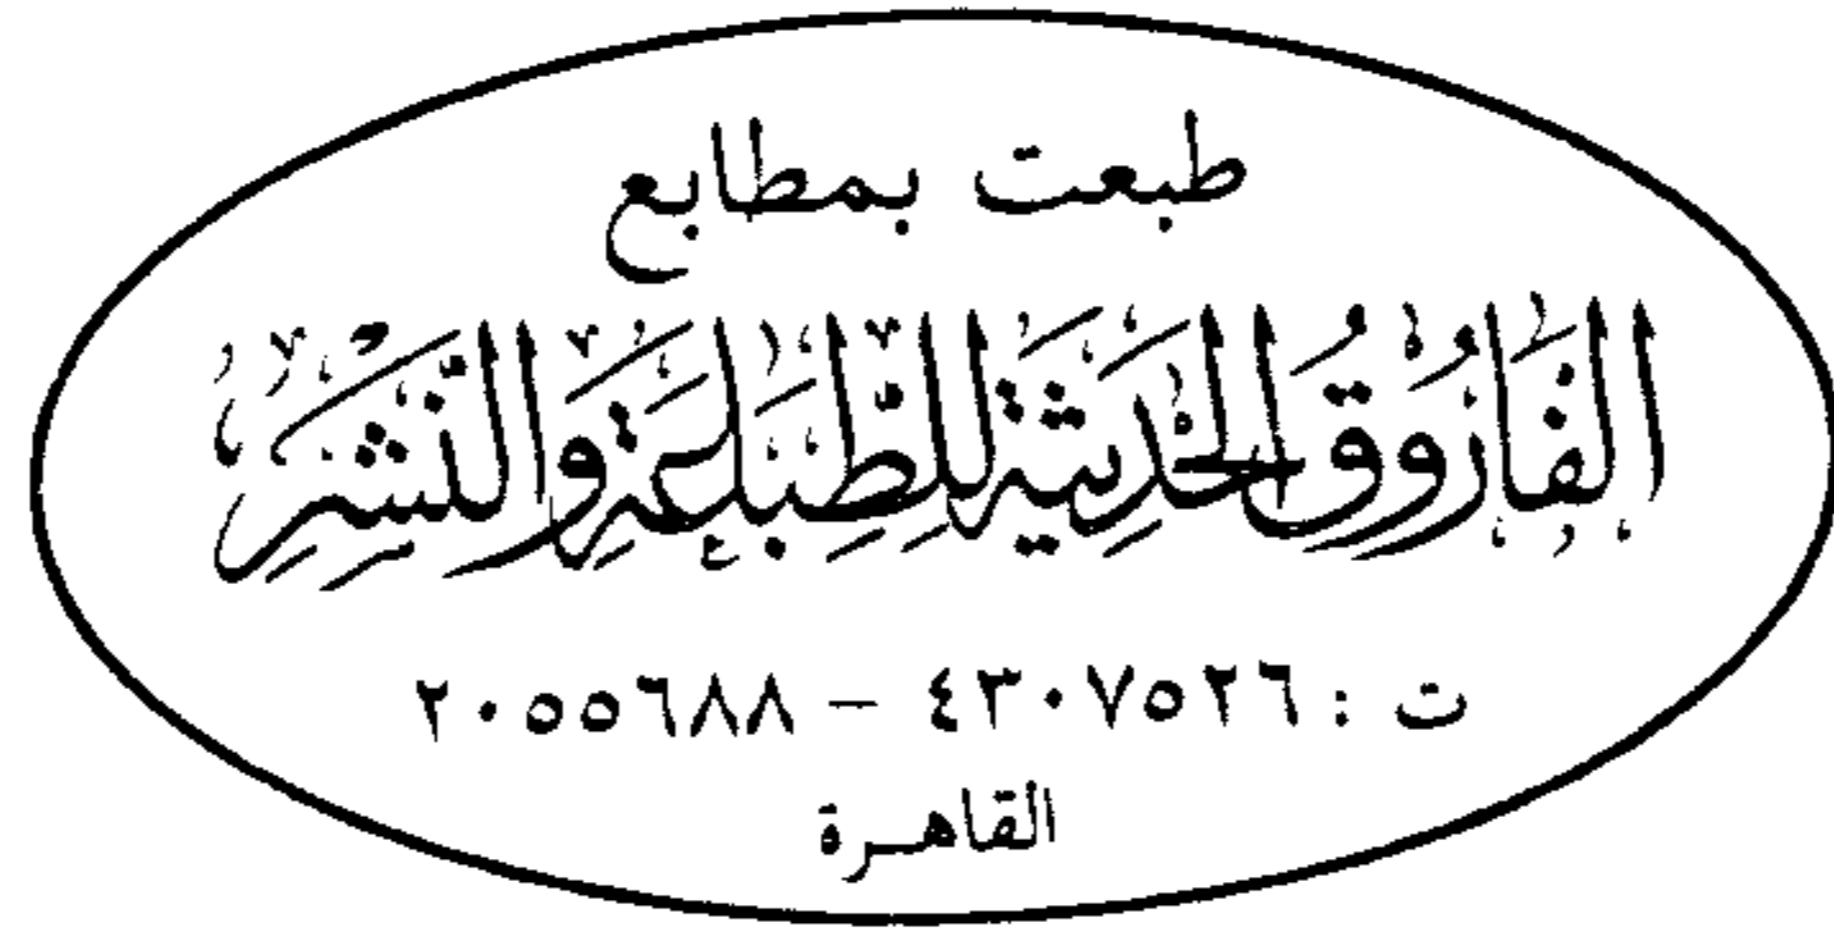 طبعت بمطابع
الفَارُوقُ الحَدِيثَةِ لِلطِّبَاعَةِ وَالنَّشْرِ
ت : ٤٣٠٧٥٢٦ – ٢٠٥٥٦٨٨
القاهـرة